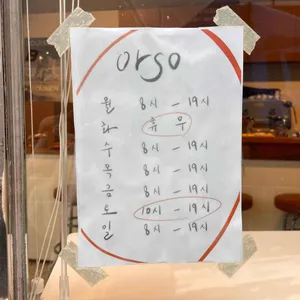 orso
월 8시 - 19시
화 휴 무
수 8시 - 19시
목 8시 - 19시
금 8시 - 19시
토 10시 - 19시
일 8시 - 19시